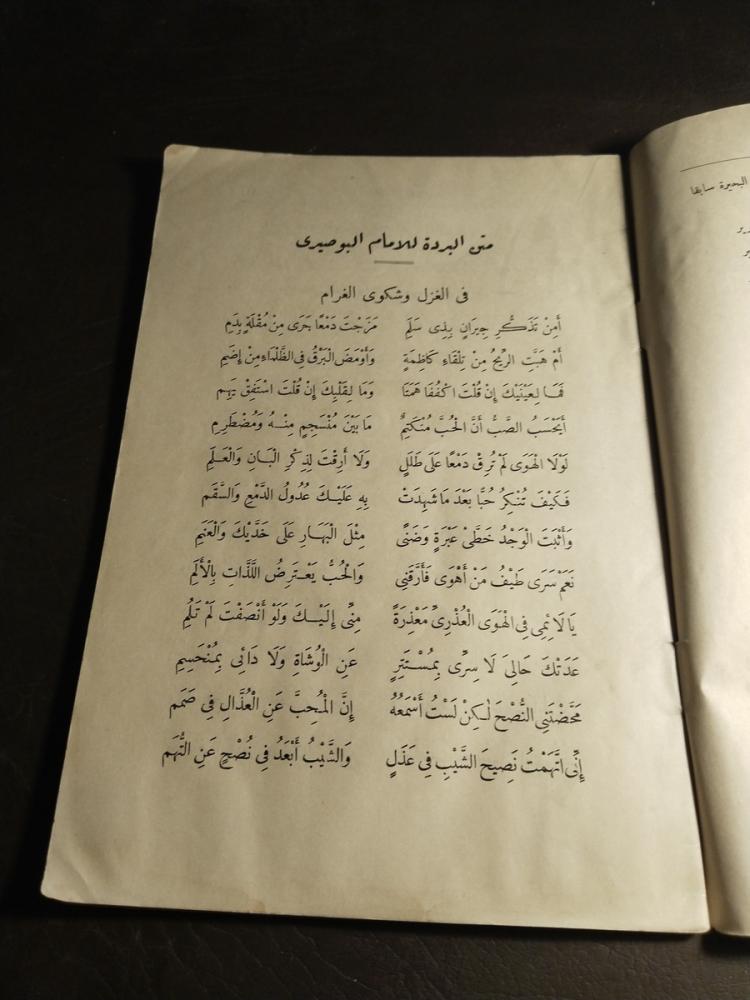 متن البردة للامام البوصيرى
فى الغزل وشكوى الغرام
أَمِنْ تَذَكُّرِ جِيرَانٍ بِذِى سَلَمِ مَزَجْتَ دَمْعًا جَرَى مِنْ مُقْلَةٍ بِدَمِ
أَمْ هَبَّتِ الرِّيحُ مِنْ تِلْقَاءِ كَاظِمَةٍ وَأَوْمَضَ الْبَرْقُ فِى الظَّلْمَاءِ مِنْ إِضَمِ
فَمَا لِعَيْنَيْكَ إِنْ قُلْتَ اكْفُفَا هَمَتَا وَمَا لِقَلْبِكَ إِنْ قُلْتَ اسْتَفِقْ يَهِمِ
أَيَحْسَبُ الصَّبُّ أَنَّ الْحُبَّ مُنْكَتِمٌ مَا بَيْنَ مُنْسَجِمٍ مِنْهُ وَمُضْطَرِمِ
لَوْلَا الْهَوَى لَمْ تُرِقْ دَمْعًا عَلَى طَلَلٍ وَلَا أَرِقْتَ لِذِكْرِ الْبَانِ وَالْعَلَمِ
فَكَيْفَ تُنْكِرُ حُبًّا بَعْدَ مَا شَهِدَتْ بِهِ عَلَيْكَ عُدُولُ الدَّمْعِ وَالسَّقَمِ
وَأَثْبَتَ الْوَجْدُ خَطَّىْ عَبْرَةٍ وَضَنًى مِثْلَ الْبَهَارِ عَلَى خَدَّيْكَ وَالْعَنَمِ
نَعَمْ سَرَى طَيْفُ مَنْ أَهْوَى فَأَرَّقَنِى وَالْحُبُّ يَعْتَرِضُ اللَّذَّاتِ بِالْأَلَمِ
يَا لَائِمِى فِى الْهَوَى الْعُذْرِىِّ مَعْذِرَةً مِنِّى إِلَيْكَ وَلَوْ أَنْصَفْتَ لَمْ تَلُمِ
عَدَتْكَ حَالِىَ لَا سِرِّى بِمُسْتَتِرٍ عَنِ الْوُشَاةِ وَلَا دَائِى بِمُنْحَسِمِ
مَحَّضْتَنِى النُّصْحَ لٰكِنْ لَسْتُ أَسْمَعُهُ إِنَّ الْمُحِبَّ عَنِ الْعُذَّالِ فِى صَمَمِ
إِنِّى اتَّهَمْتُ نَصِيحَ الشَّيْبِ فِى عَذَلٍ وَالشَّيْبُ أَبْعَدُ فِى نُصْحٍ عَنِ التُّهَمِ
البحيرة سابقا